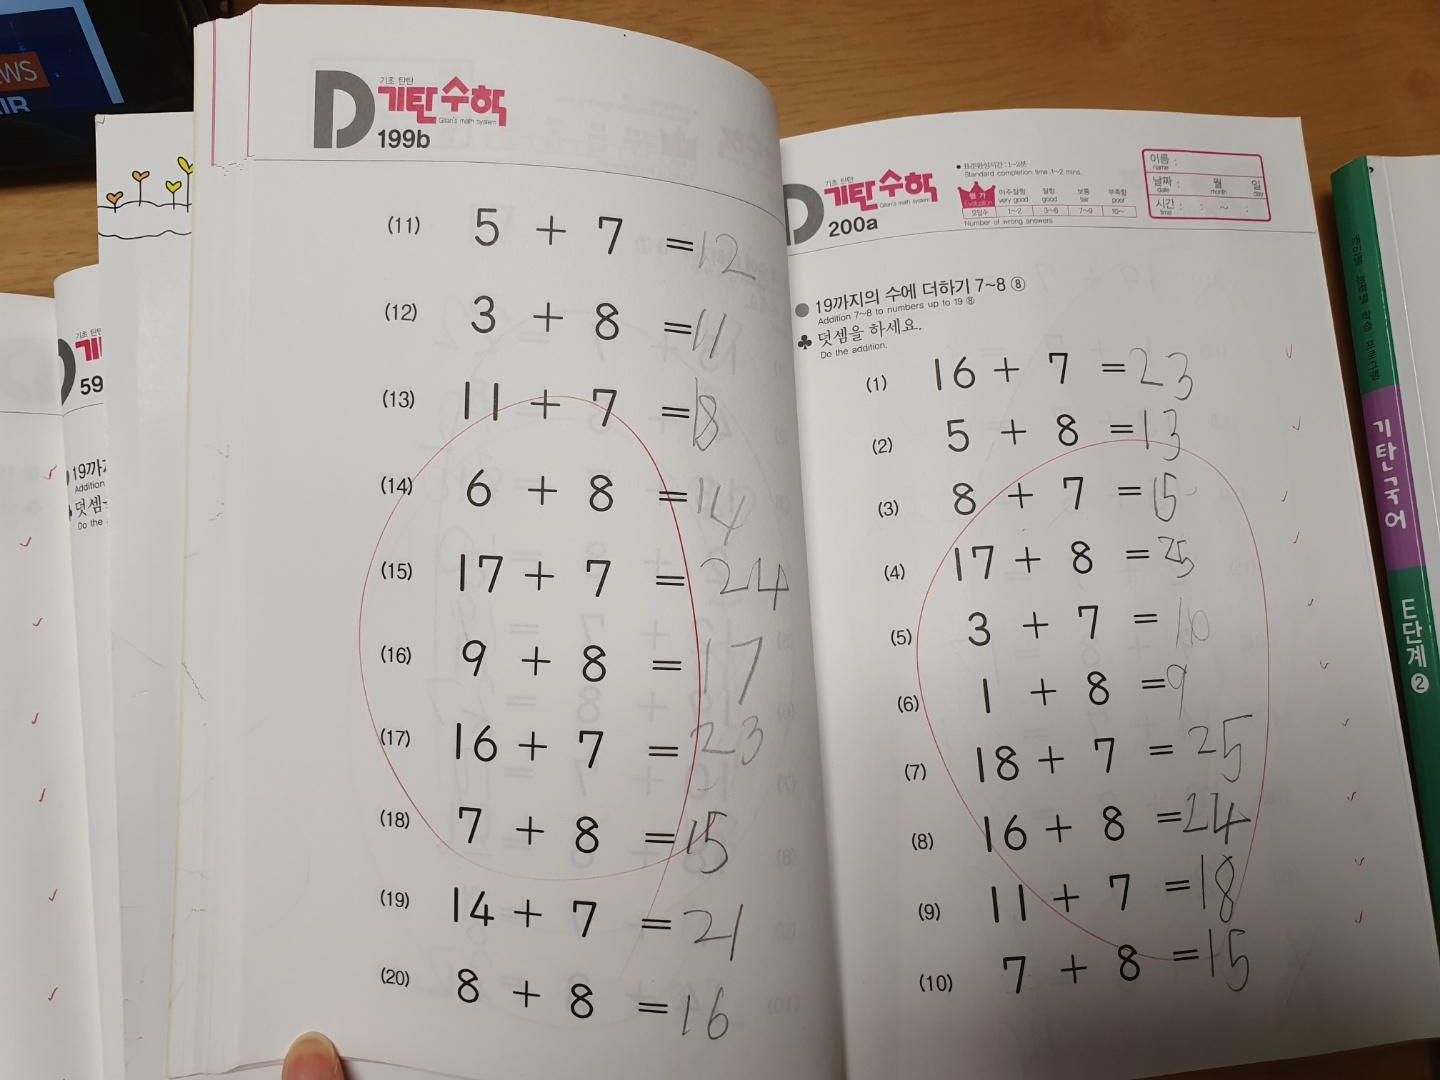 WS
AIR
59
19까지
Addition
덧셈
Do the a
기초 탄탄
D 기탄수학
Gitan's math system
199b
(11) 5 + 7 = 12
(12) 3 + 8 = 11
(13) 11 + 7 = 18
(14) 6 + 8 = 14
(15) 17 + 7 = 24
(16) 9 + 8 = 17
(17) 16 + 7 = 23
(18) 7 + 8 = 15
(19) 14 + 7 = 21
(20) 8 + 8 = 16
기초 탄탄
D 기탄수학
Gitan's math system
200a
● 표준완성시간 : 1~2분
Standard completion time : 1~2 mins.
평가 아주잘함 잘함 보통 부족함
Evaluation very good good fair poor
오답수 1~2 3~6 7~9 10~
Number of wrong answers
이름 :
name
날짜 : 월 일
date month day
시간 : : ~ :
time
● 19까지의 수에 더하기 7~8 ⑧
Addition 7~8 to numbers up to 19 ⑧
♣ 덧셈을 하세요.
Do the addition.
(1) 16 + 7 = 23
(2) 5 + 8 = 13
(3) 8 + 7 = 15
(4) 17 + 8 = 25
(5) 3 + 7 = 10
(6) 1 + 8 = 9
(7) 18 + 7 = 25
(8) 16 + 8 = 24
(9) 11 + 7 = 18
(10) 7 + 8 = 15
개인별 능력별 학습 프로그램
기탄국어
E단계 ②